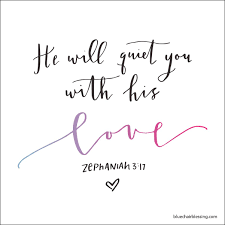 He will quiet you
with his
love
ZEPHANIAH 3:17
bluechairblessing.com